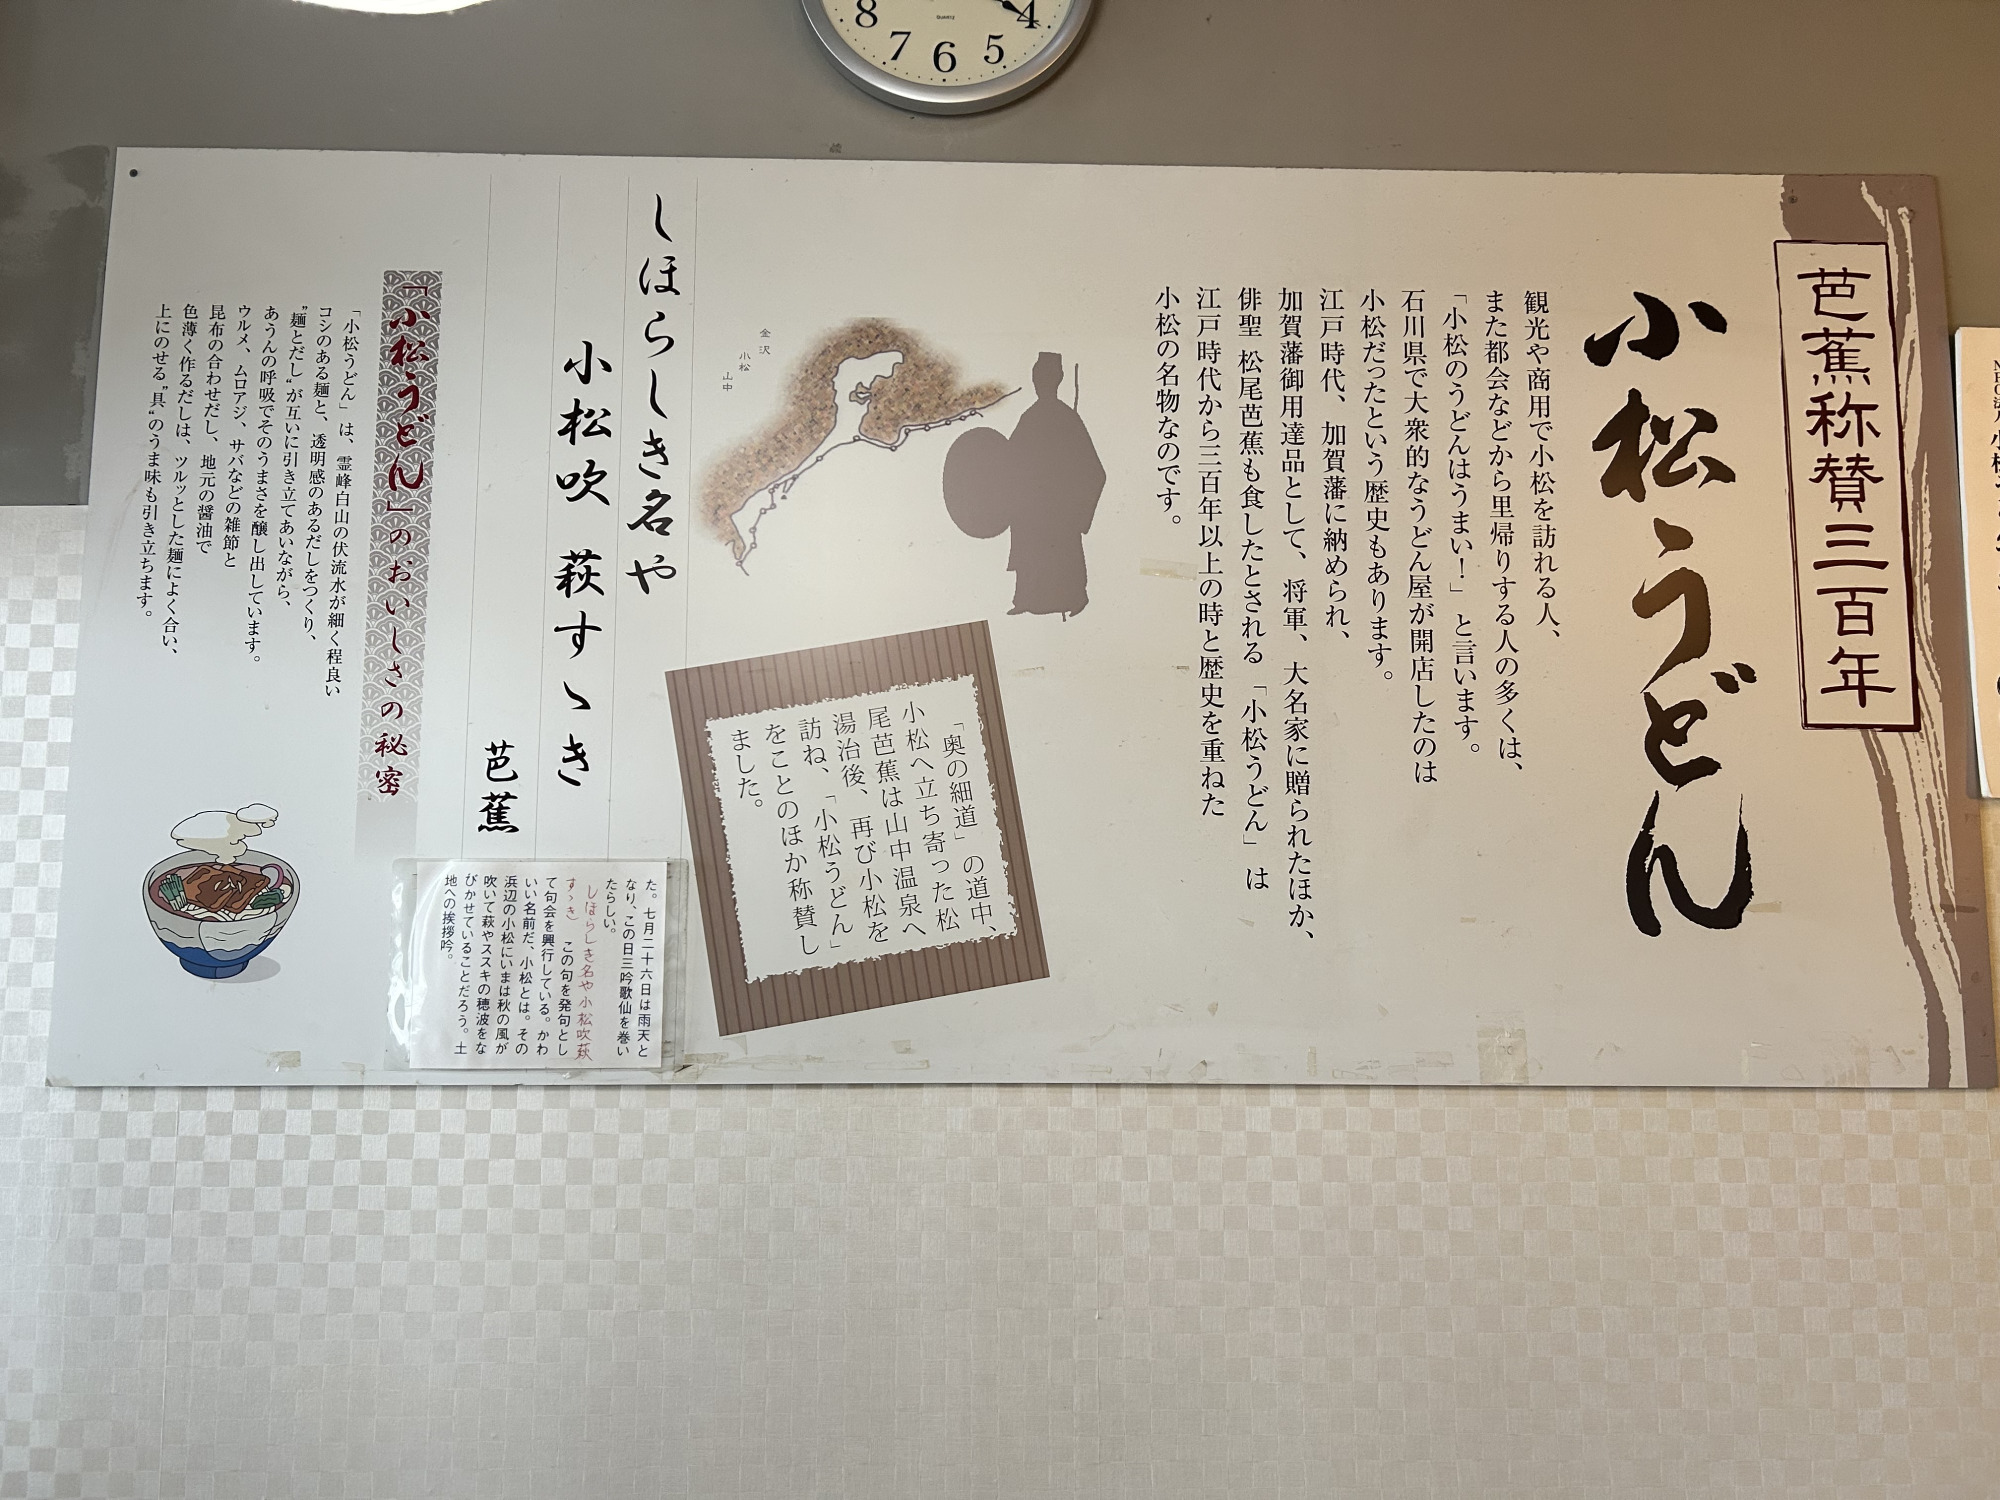 8 7 6 5 4
QUARTZ
芭蕉称賛三百年
小松うどん
観光や商用で小松を訪れる人、
また都会などから里帰りする人の多くは、
「小松のうどんはうまい！」と言います。
石川県で大衆的なうどん屋が開店したのは
小松だったという歴史もあります。
江戸時代、加賀藩に納められ、
加賀藩御用達品として、将軍、大名家に贈られたほか、
俳聖 松尾芭蕉も食したとされる「小松うどん」は
江戸時代から三百年以上の時と歴史を重ねた
小松の名物なのです。
金沢
小松
山中
「奥の細道」の道中、
小松へ立ち寄った松
尾芭蕉は山中温泉へ
湯治後、再び小松を
訪ね、「小松うどん」
をことのほか称賛し
ました。
しほらしき名や
小松吹 萩すゝき
芭蕉
た。七月二十六日は雨天と
なり、この日三吟歌仙を巻い
たらしい。
しほらしき名や小松吹萩
すゝき　この句を発句とし
て句会を興行している。かわ
いい名前だ、小松とは。その
浜辺の小松にいまは秋の風が
吹いて萩やススキの穂波をな
びかせていることだろう。土
地への挨拶吟。
「小松うどん」のおいしさの秘密
「小松うどん」は、霊峰白山の伏流水が細く程良い
コシのある麺と、透明感のあるだしをつくり、
”麺とだし“が互いに引き立てあいながら、
あうんの呼吸でそのうまさを醸し出しています。
ウルメ、ムロアジ、サバなどの雑節と
昆布の合わせだし、地元の醤油で
色薄く作るだしは、ツルッとした麺によく合い、
上にのせる”具“のうま味も引き立ちます。